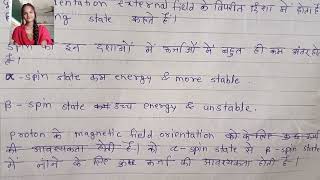 orientation external field के विपरीत दिशा में होता है
state कहते हैं।
spin की इन दशाओं में ऊर्जाओं में बहुत ही कम अंतर
α-spin state कम energy & more stable
β- spin state उच्च energy & unstable.
proton के magnetic field orientation को
की आवश्यकता होती है। को α-spin state से β-spin state
में जाने के लिए कुछ ऊर्जा की आवश्यकता होती है।